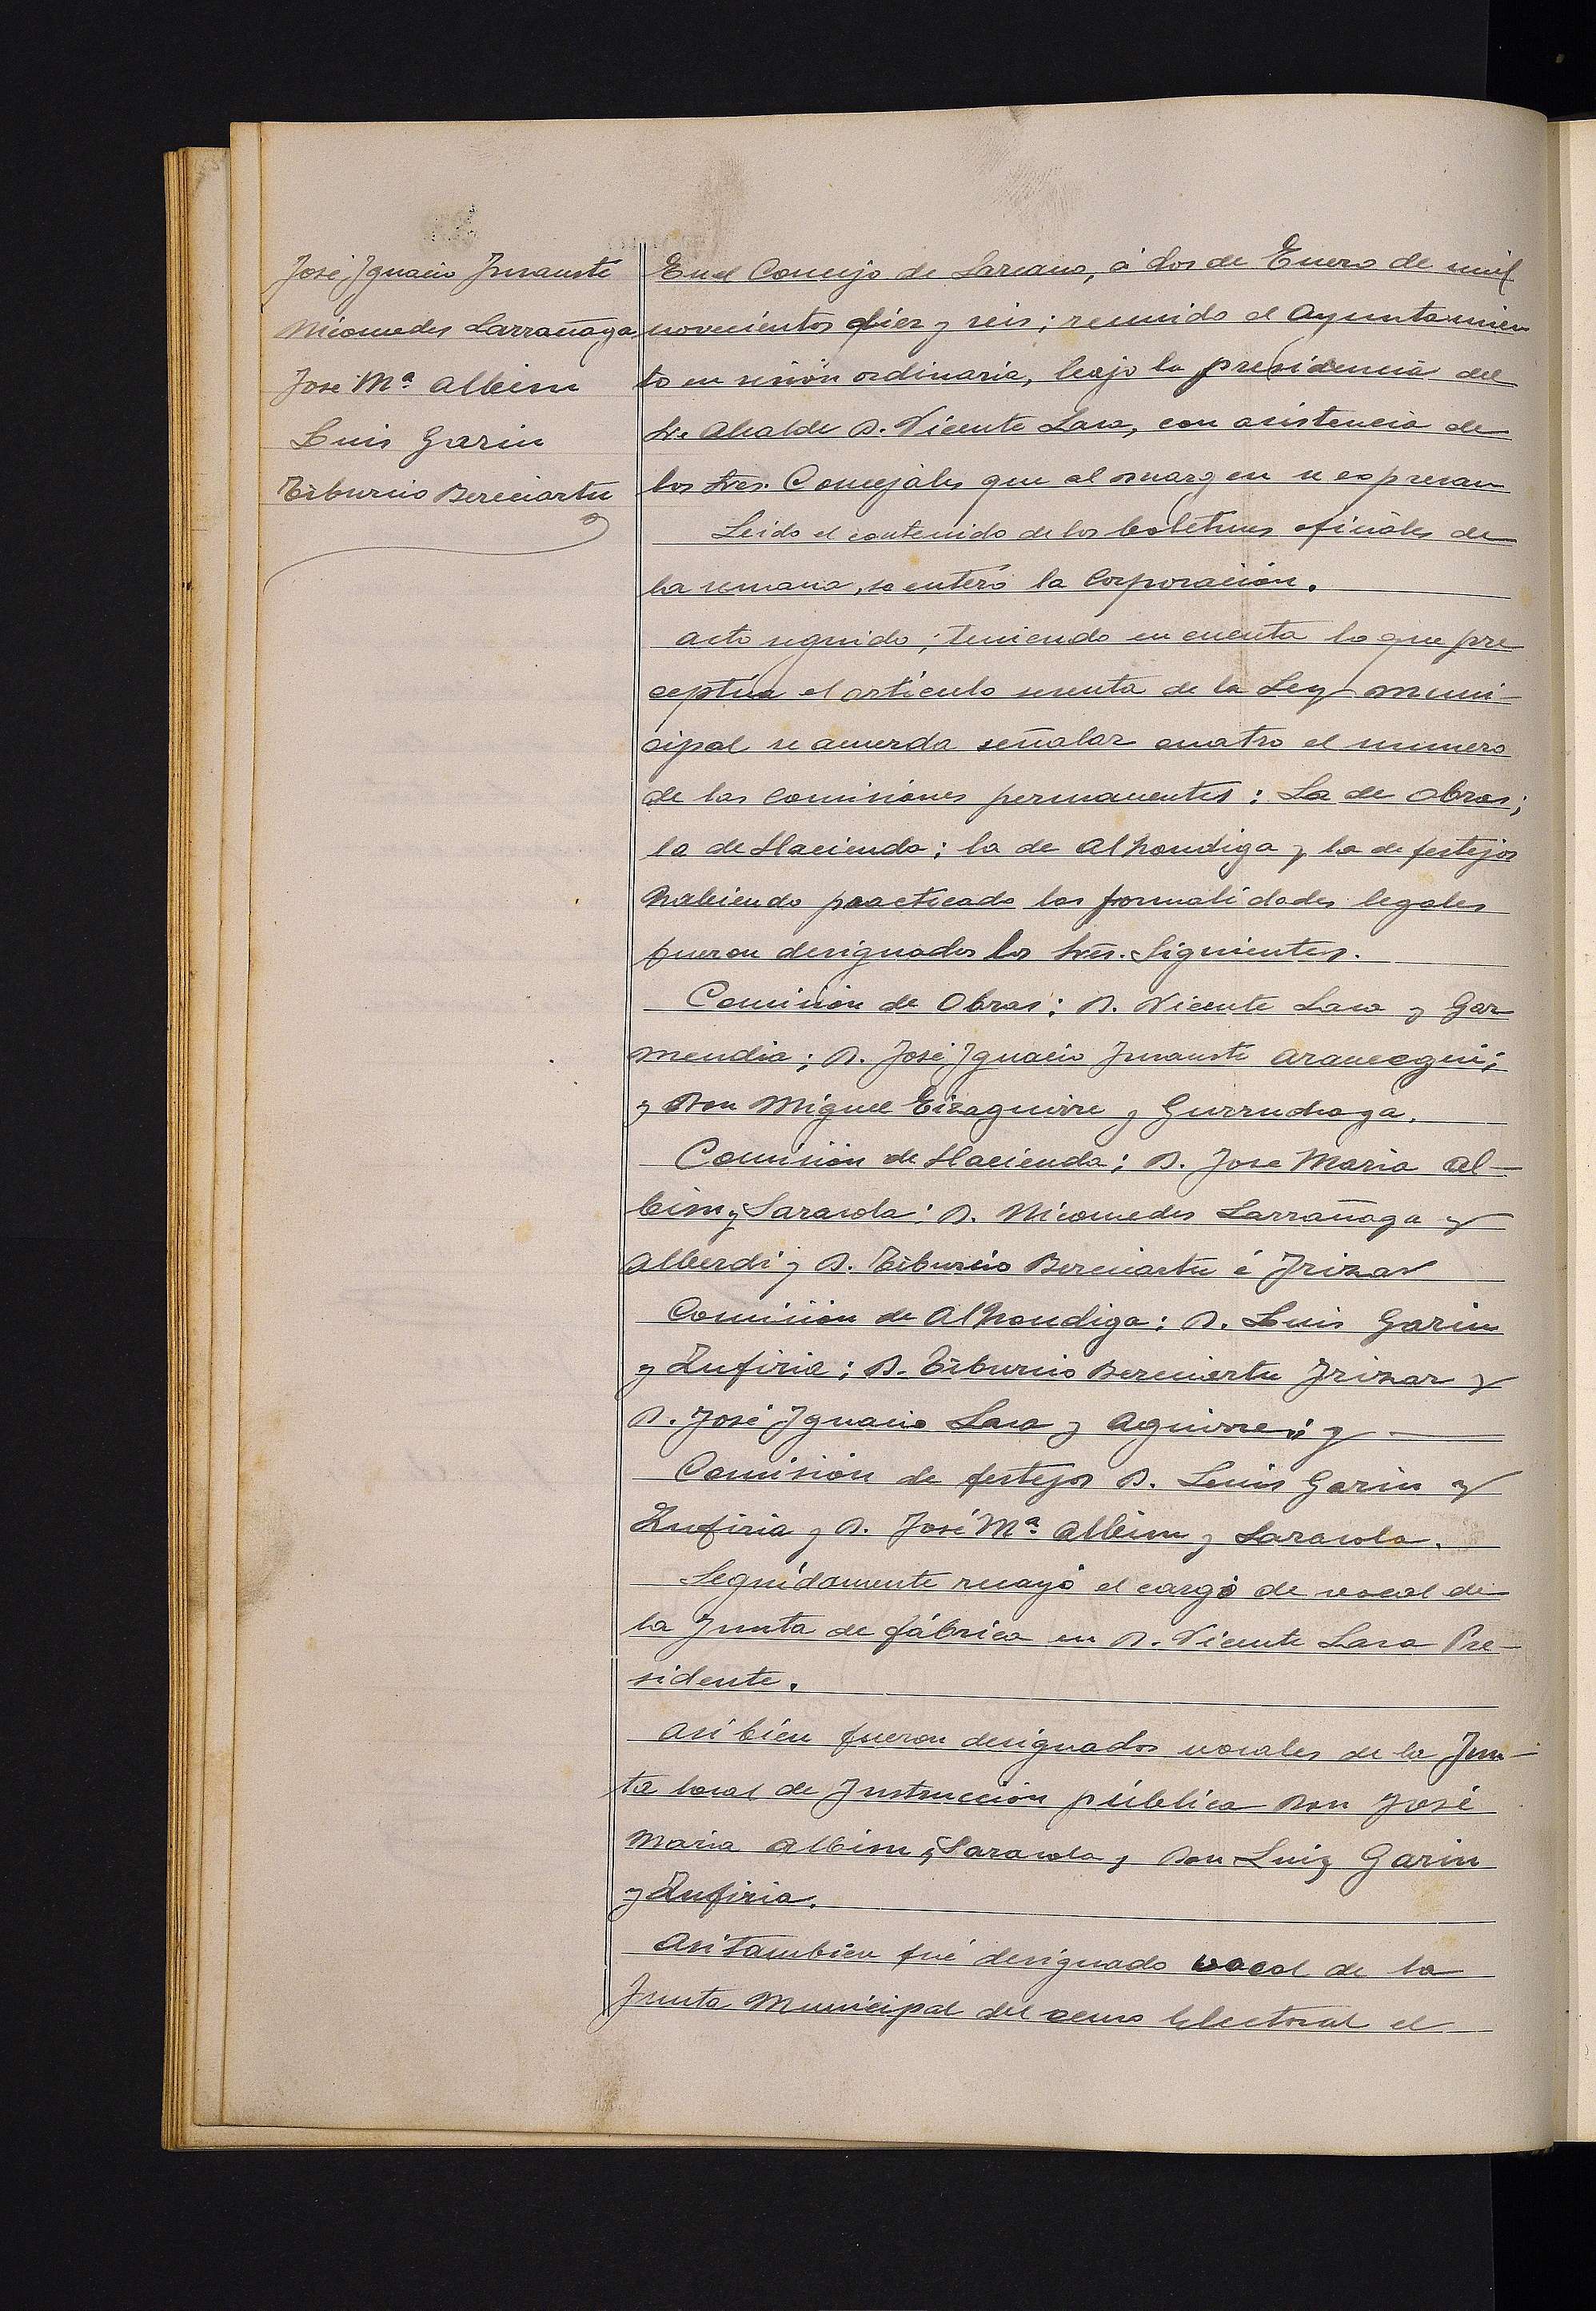 José Ygnacio Ynnausti
Nicomedes Larrañaga
José Mª. Albisu
Luis Garin
Tiburcio Bereciartu
En el Concejo de Lazcano, á dos de Enero de mil
novecientos diez y seis; reunido el Ayuntamien
to en sesión ordinaria, bajo la presidencia del
Sr. Alcalde D. Vicente Lasa, con asistencia de
los Sres. Concejales que al margen se espresan
Leido el contenido de los boletines oficiales de
la semana, se enteró la Corporación.
Acto seguido; teniendo en cuenta lo que pre
ceptúa el artículo sesenta de la Ley muni-
cipal se acuerda señalar cuatro el numero
de las comisiones permanentes: La de Obras;
la de Hacienda; la de Alhondiga y la de festejos
habiendo practicado las formalidades legales
fueron designados los Sres. Siguientes.
Comisión de Obras: D. Vicente Lasa y Gar
mendia; D. José Ygnacio Ynnausti Aranegui;
y Don Miguel Eizaguirre y Gurruchaga.
Comisión de Hacienda; D. Jose Maria Al-
bisu y Sarasola: D. Nicomedes Larrañaga y
Alberdi y D. Tiburcio Bereciartu é Yrizar
Comisión de Alhondiga: D. Luis Garin
y Zufiria; D. Tiburcio Bereciartu Yrizar y
D. José Ygnacio Lasa y Aguirre; y
Comisión de festejos D. Luis Garin y
Zufiria y D. José Mª. Albisu y Sarasola.
Seguidamente recayó el cargo de vocal de
la Junta de fábrica en D. Vicente Lasa Pre-
sidente.
Asi bien fueron designados vocales de la Jun-
ta local de Ynstrucción pública Don José
Maria Albisu y Sarasola y Don Luiz Garin
y Zufiria.
Asi tambien fué designado vocal de la
Junta Municipal del censo Electoral el